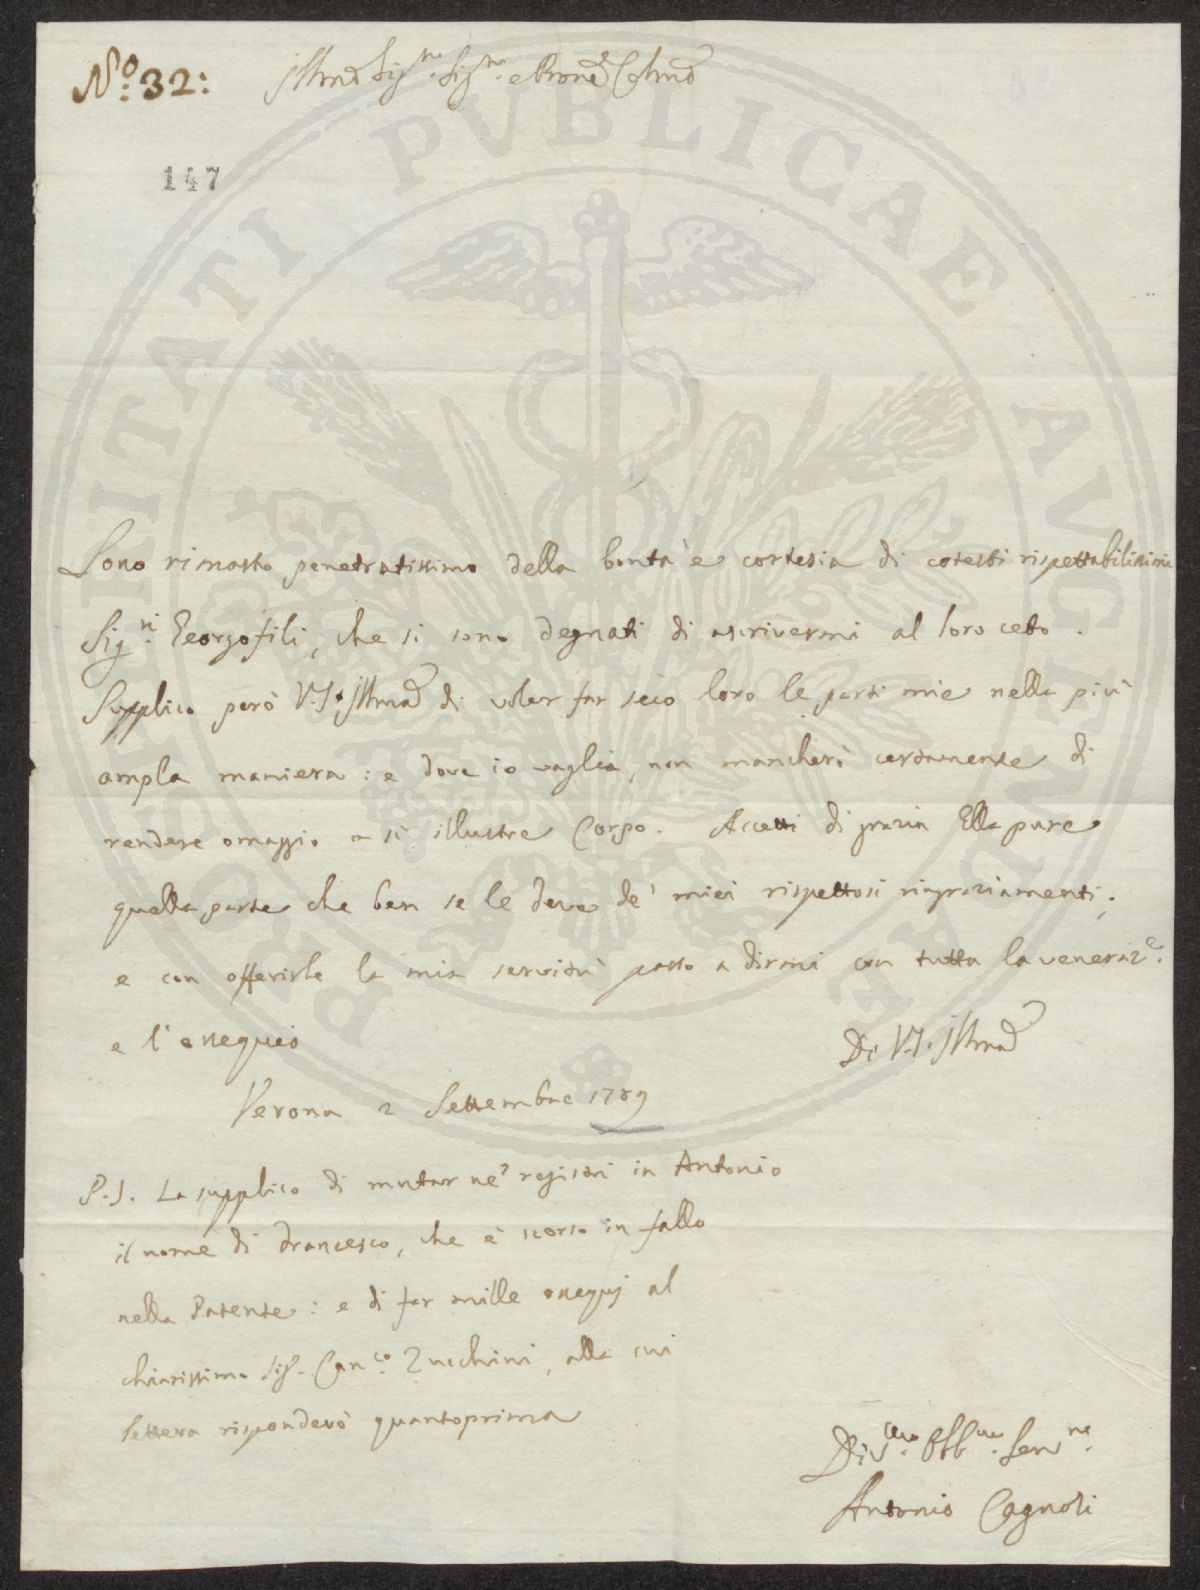 N.o 32:
Illmo Sig.re Sig.re e Prone Colmo
147
PROSPERITATI PVBLICAE AVGENDAE
Sono rimasto penetratissimo della bontà e cortesia di cotesti rispettabilissimi
Sig.ri Georgofili, che si sono degnati di ascrivermi al loro ceto.
Supplico però V.S. Illma di voler far seco loro le parti mie nella più
ampla maniera: e dove io vaglia, non mancherò certamente di
rendere omaggio a sì illustre Corpo. Accetti di grazia Ella pure
quella parte che ben se le deve de' miei rispettosi ringraziamenti;
e con offerirle la mia servitù passo a dirmi con tutta la veneraz.e
e l'ossequio
Di V.S. Illma
Verona 2 Settembre 1789
P.S. La supplico di mutar ne' registri in Antonio
il nome di Francesco, che è scorso in fallo
nella Patente: e di far mille ossequj al
chiarissimo Sig. Can.co Zucchini, alla cui
lettera risponderò quantoprima
Div.mo Obb.mo Serv.re
Antonio Cagnoli